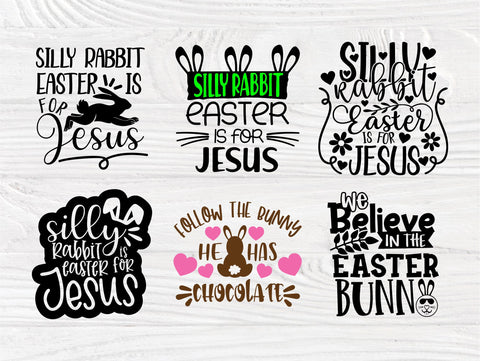 SILLY RABBIT
EASTER IS
FOR
Jesus
SILLY RABBIT
EASTER
IS FOR
JESUS
SILLY
Rabbit
Easter
IS FOR
JESUS
silly
Rabbit is
easter for
Jesus
FOLLOW THE BUNNY
HE HAS
CHOCOLATE
We
Believe
IN THE
EASTER
BUNNY